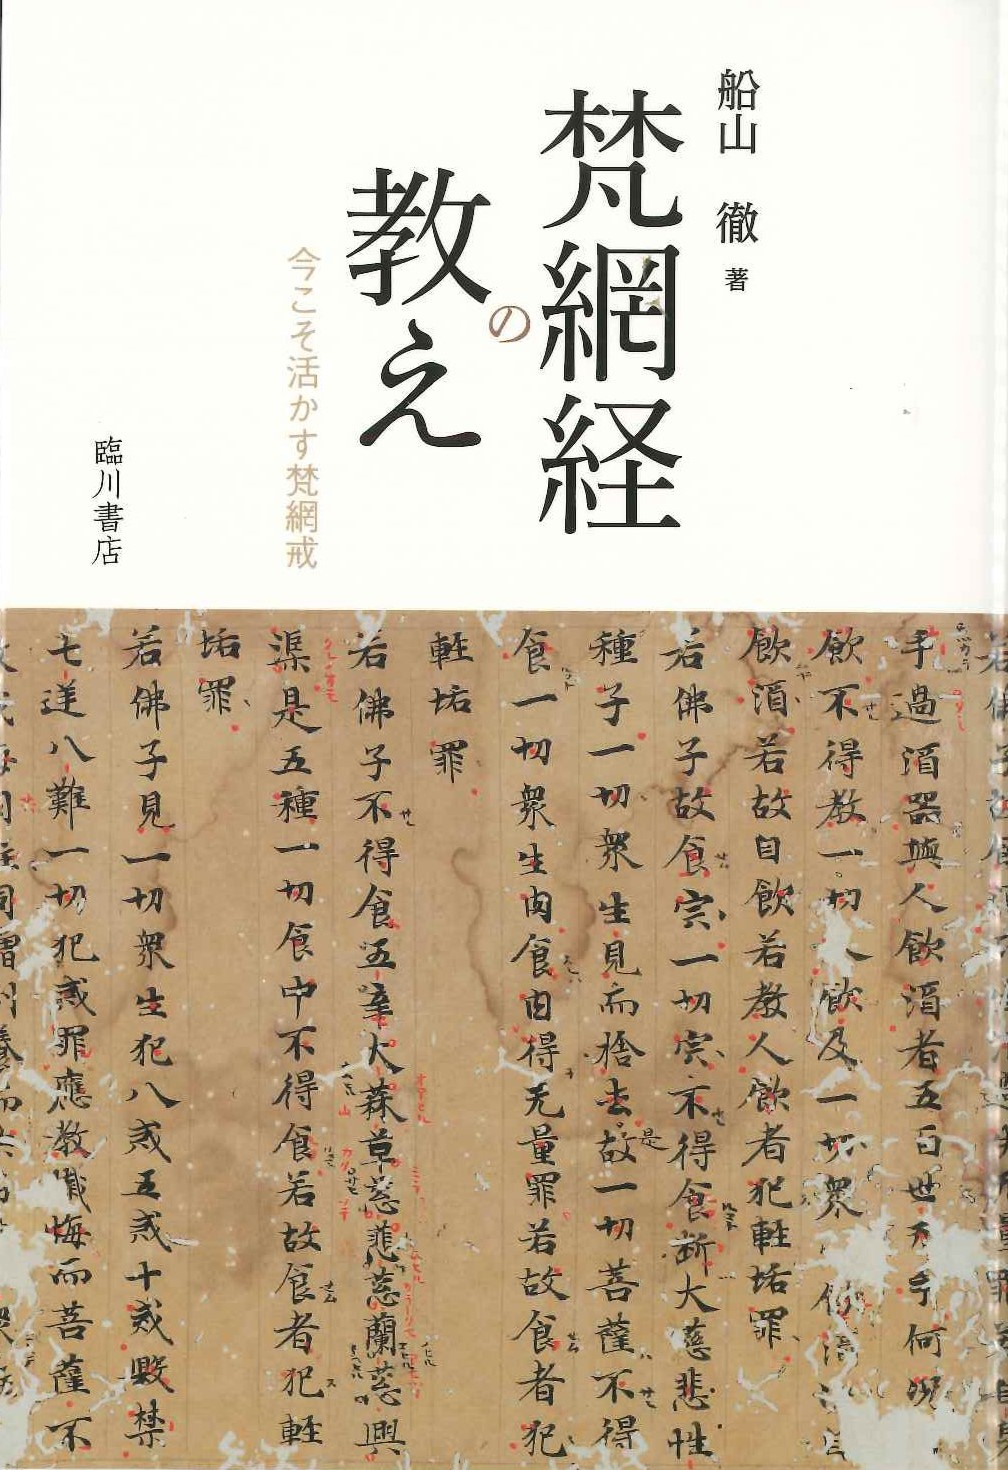 船山 徹 著
梵網経
の
教え
今こそ活かす梵網戒
臨川書店
手過酒器與人飲酒者五百世无手何況
飲不得教一切人飲及一切衆
飲酒若故自飲若教人飲者犯軽垢罪
若佛子故食宍一切宍不得食断大慈悲性
種子一切衆生見而捨去是故一切菩薩不得
食一切衆生肉食肉得无量罪若故食者犯
軽垢罪
若佛子不得食五辛大蒜草葱慈葱蘭葱興
渠是五種一切食中不得食若故食者犯軽
垢罪
若佛子見一切衆生犯八戒五戒十戒毀禁
七逆八難一切犯戒罪應教懺悔而菩薩不